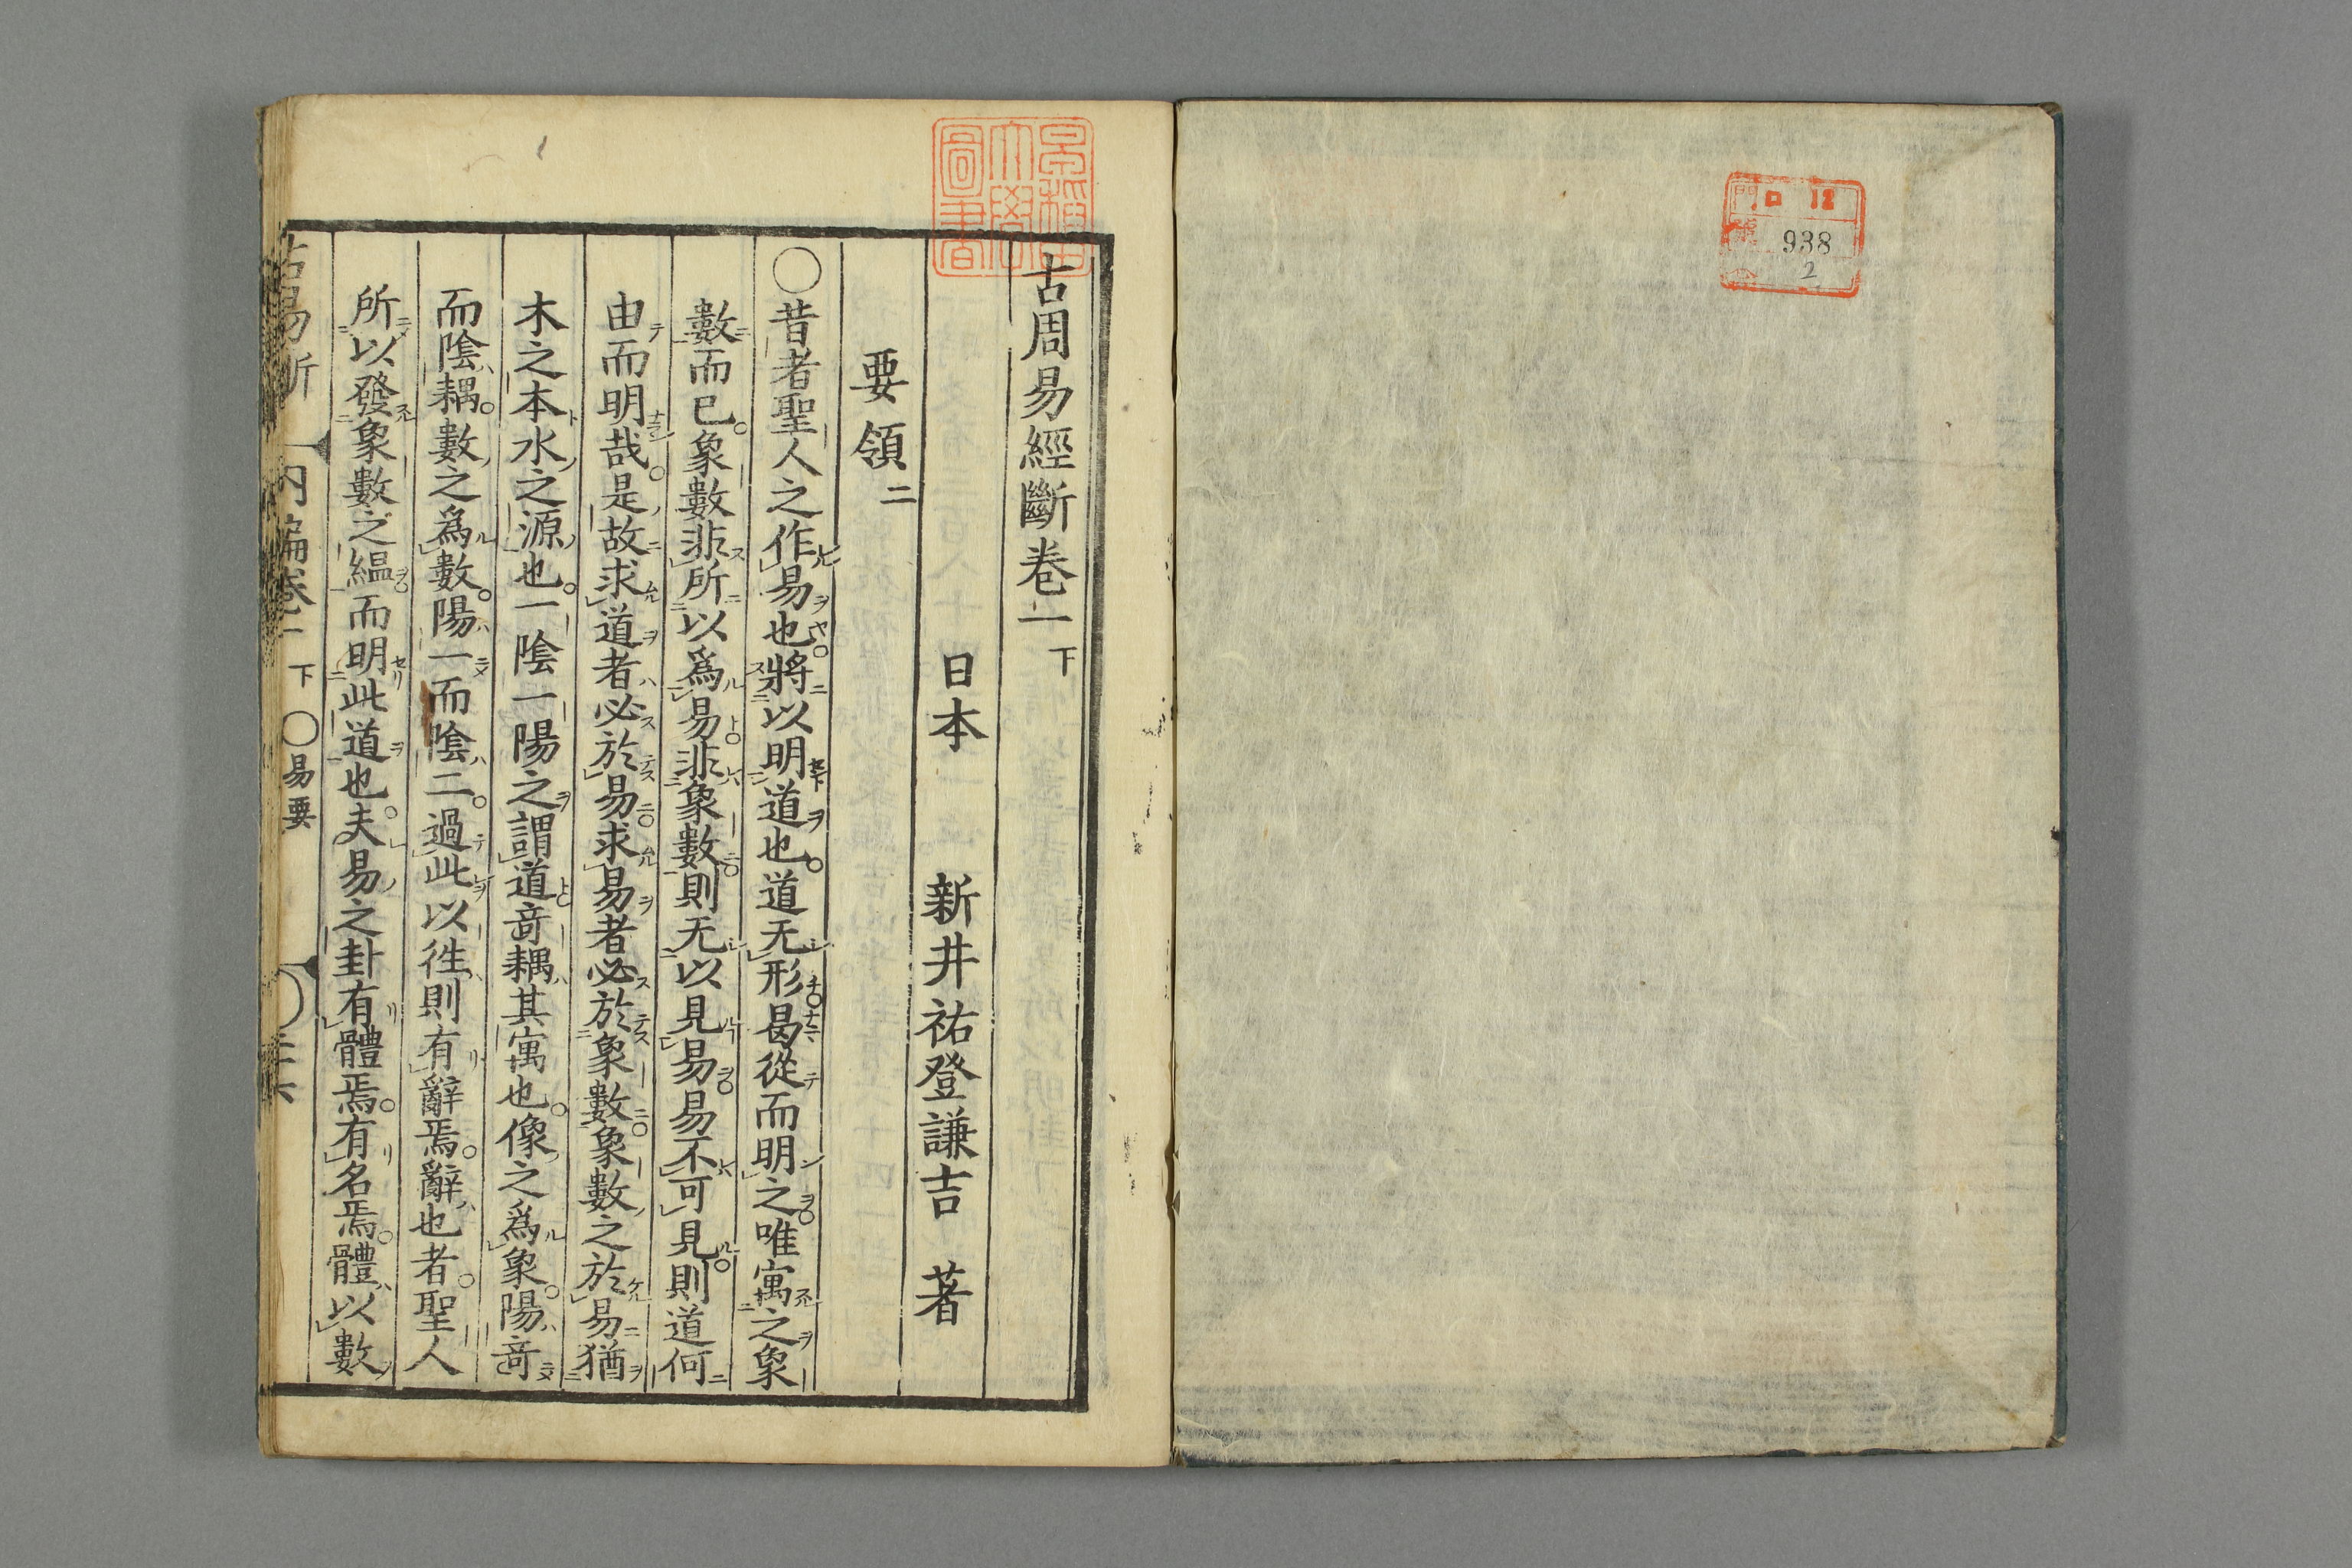 門 ロ 12
938
2
早稻田大學圖書
古周易經斷卷一 下
日本 新井祐登謙吉 著
要領 二
○昔者聖人之作易也將以明道也道无形曷從而明之唯寓之象
數而已象數非所以爲易非象數則无以見易易不可見則道何
由而明哉是故求道者必於易求易者必於象數象數之於易猶
木之本水之源也一陰一陽之謂道奇耦其寓也像之爲象陽奇
而陰耦數之爲數陽一而陰二過此以徃則有辭焉辭也者聖人
所以發象數之縕而明此道也夫易之卦有體焉有名焉體以數
古易斷 內編卷一 下 ○易要